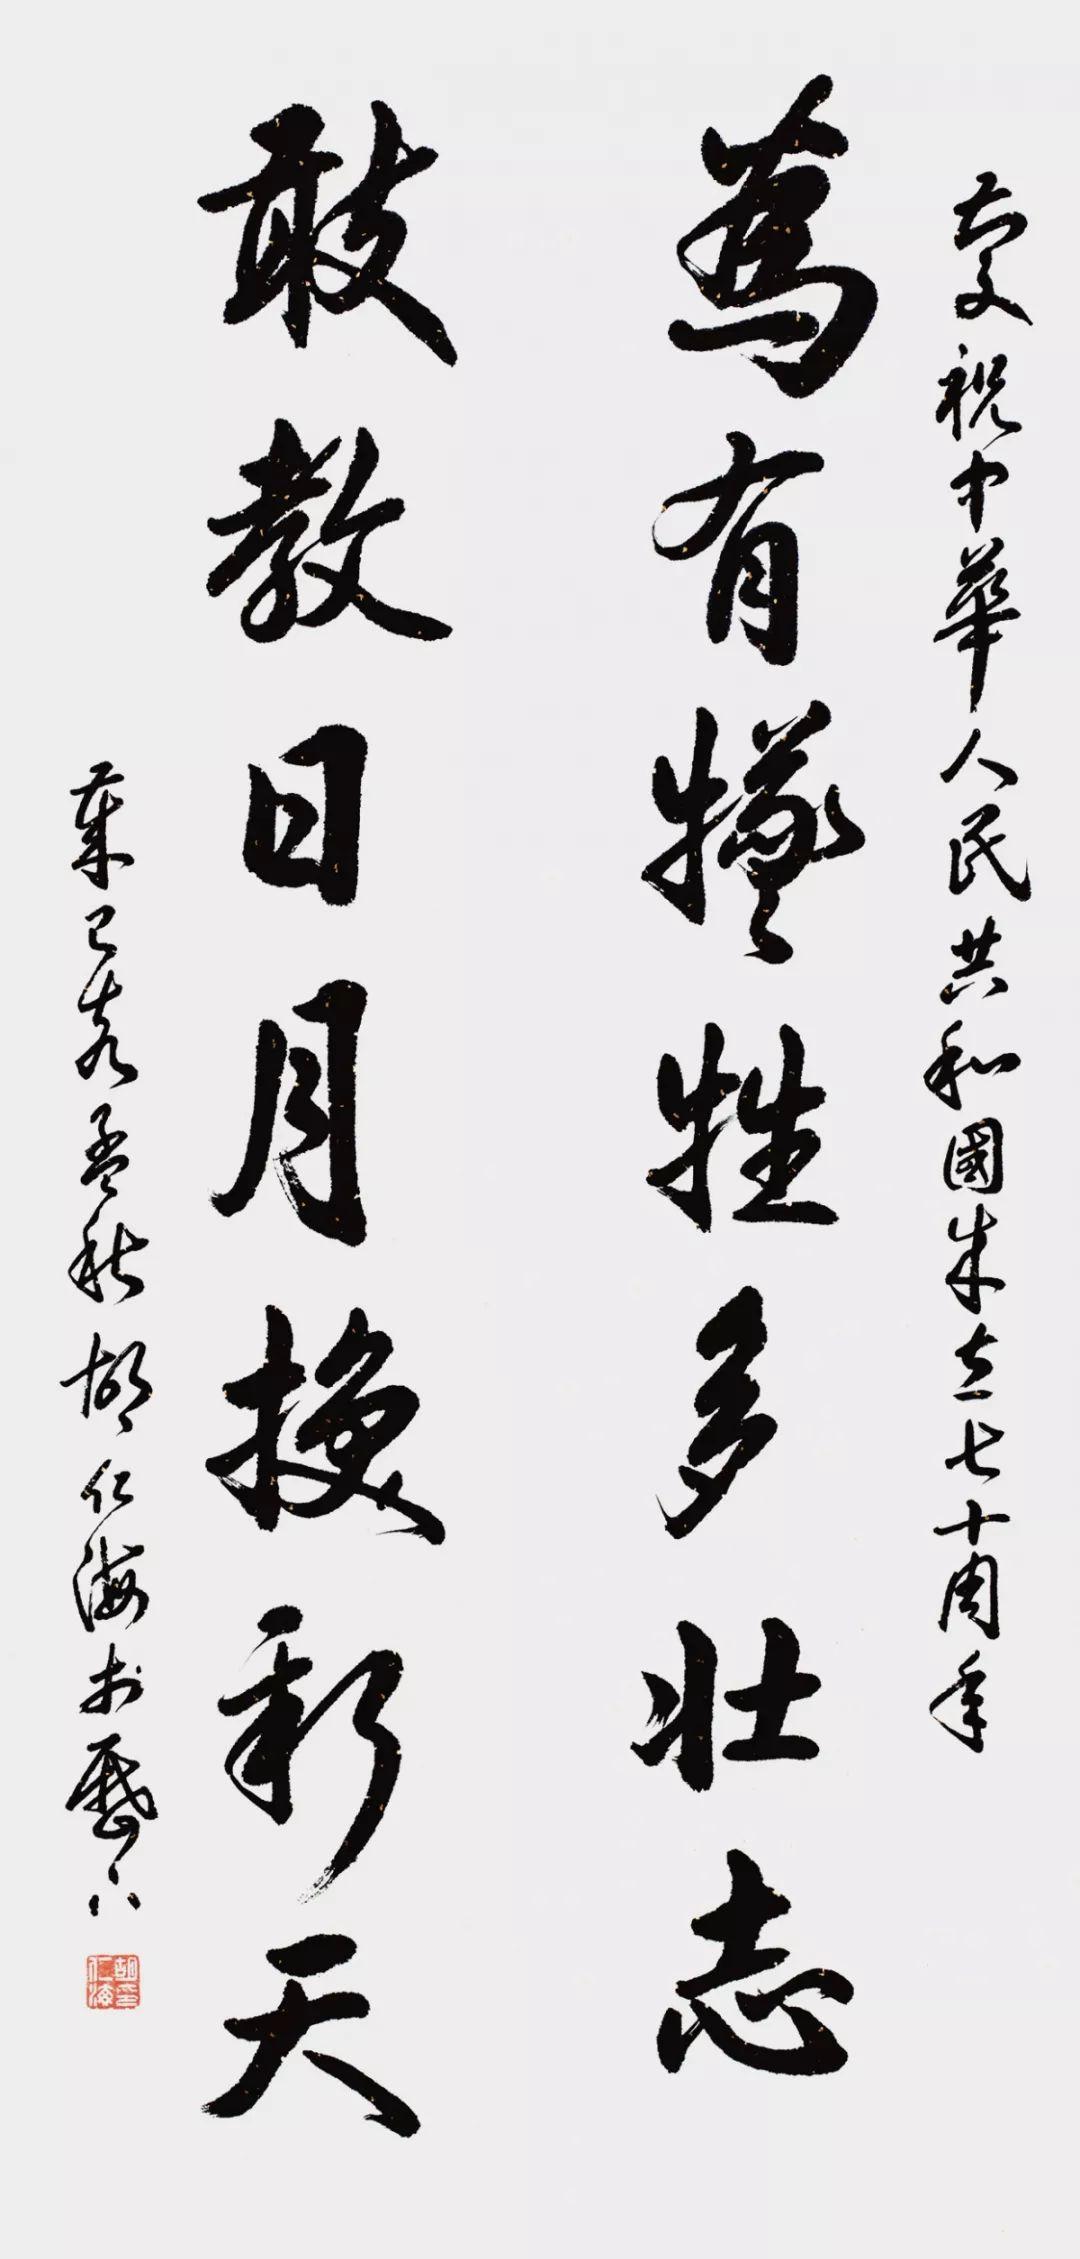 慶祝中華人民共和國成立七十周年
為有犧牲多壯志
敢教日月換新天
歲己亥孟秋胡仁海於歷下
胡印
仁海